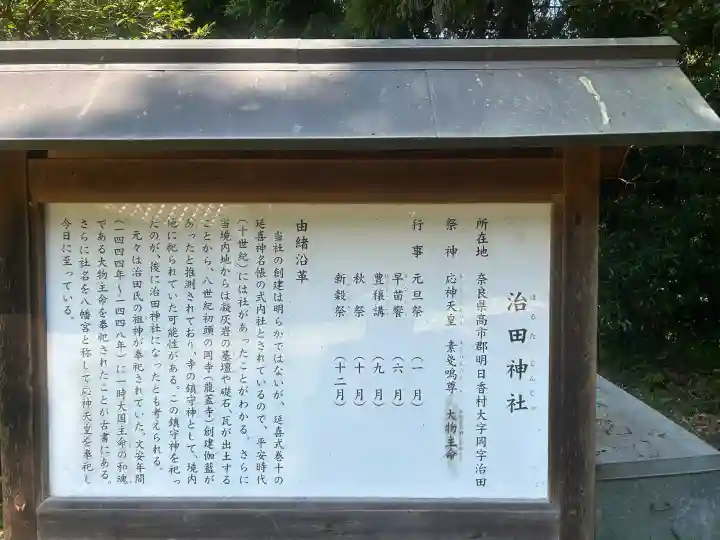 治田神社
はるた じんじゃ
所在地 奈良県高市郡明日香村大字岡字治田
祭神 応神天皇 素戔嗚尊 大物主命
行事 元旦祭 (一月)
早苗饗 (六月)
豊穣講 (九月)
秋祭 (十月)
新穀祭 (十二月)
由緒沿革
当社の創建は明らかではないが、延喜式巻十の
延喜神名帳の式内社とされているので、平安時代
(十世紀)には社があったことがわかる。さらに
当境内地からは凝灰岩の基壇や礎石、瓦が出土する
ことから、八世紀初頭の岡寺(龍蓋寺)創建伽藍が
あったと推測されており、寺の鎮守神として、境内
地に祀られていた可能性がある。この鎮守神を祀っ
たのが、後に治田神社になったとも考えられる。
元々は治田氏の祖神が奉祀されていた。文安年間
(一四四四年~一四四八年)に一時大国主命の和魂
である大物主命を奉祀されたことが古書にある。
さらに社名を八幡宮と称して応神天皇を奉祀し
今日に至っている。